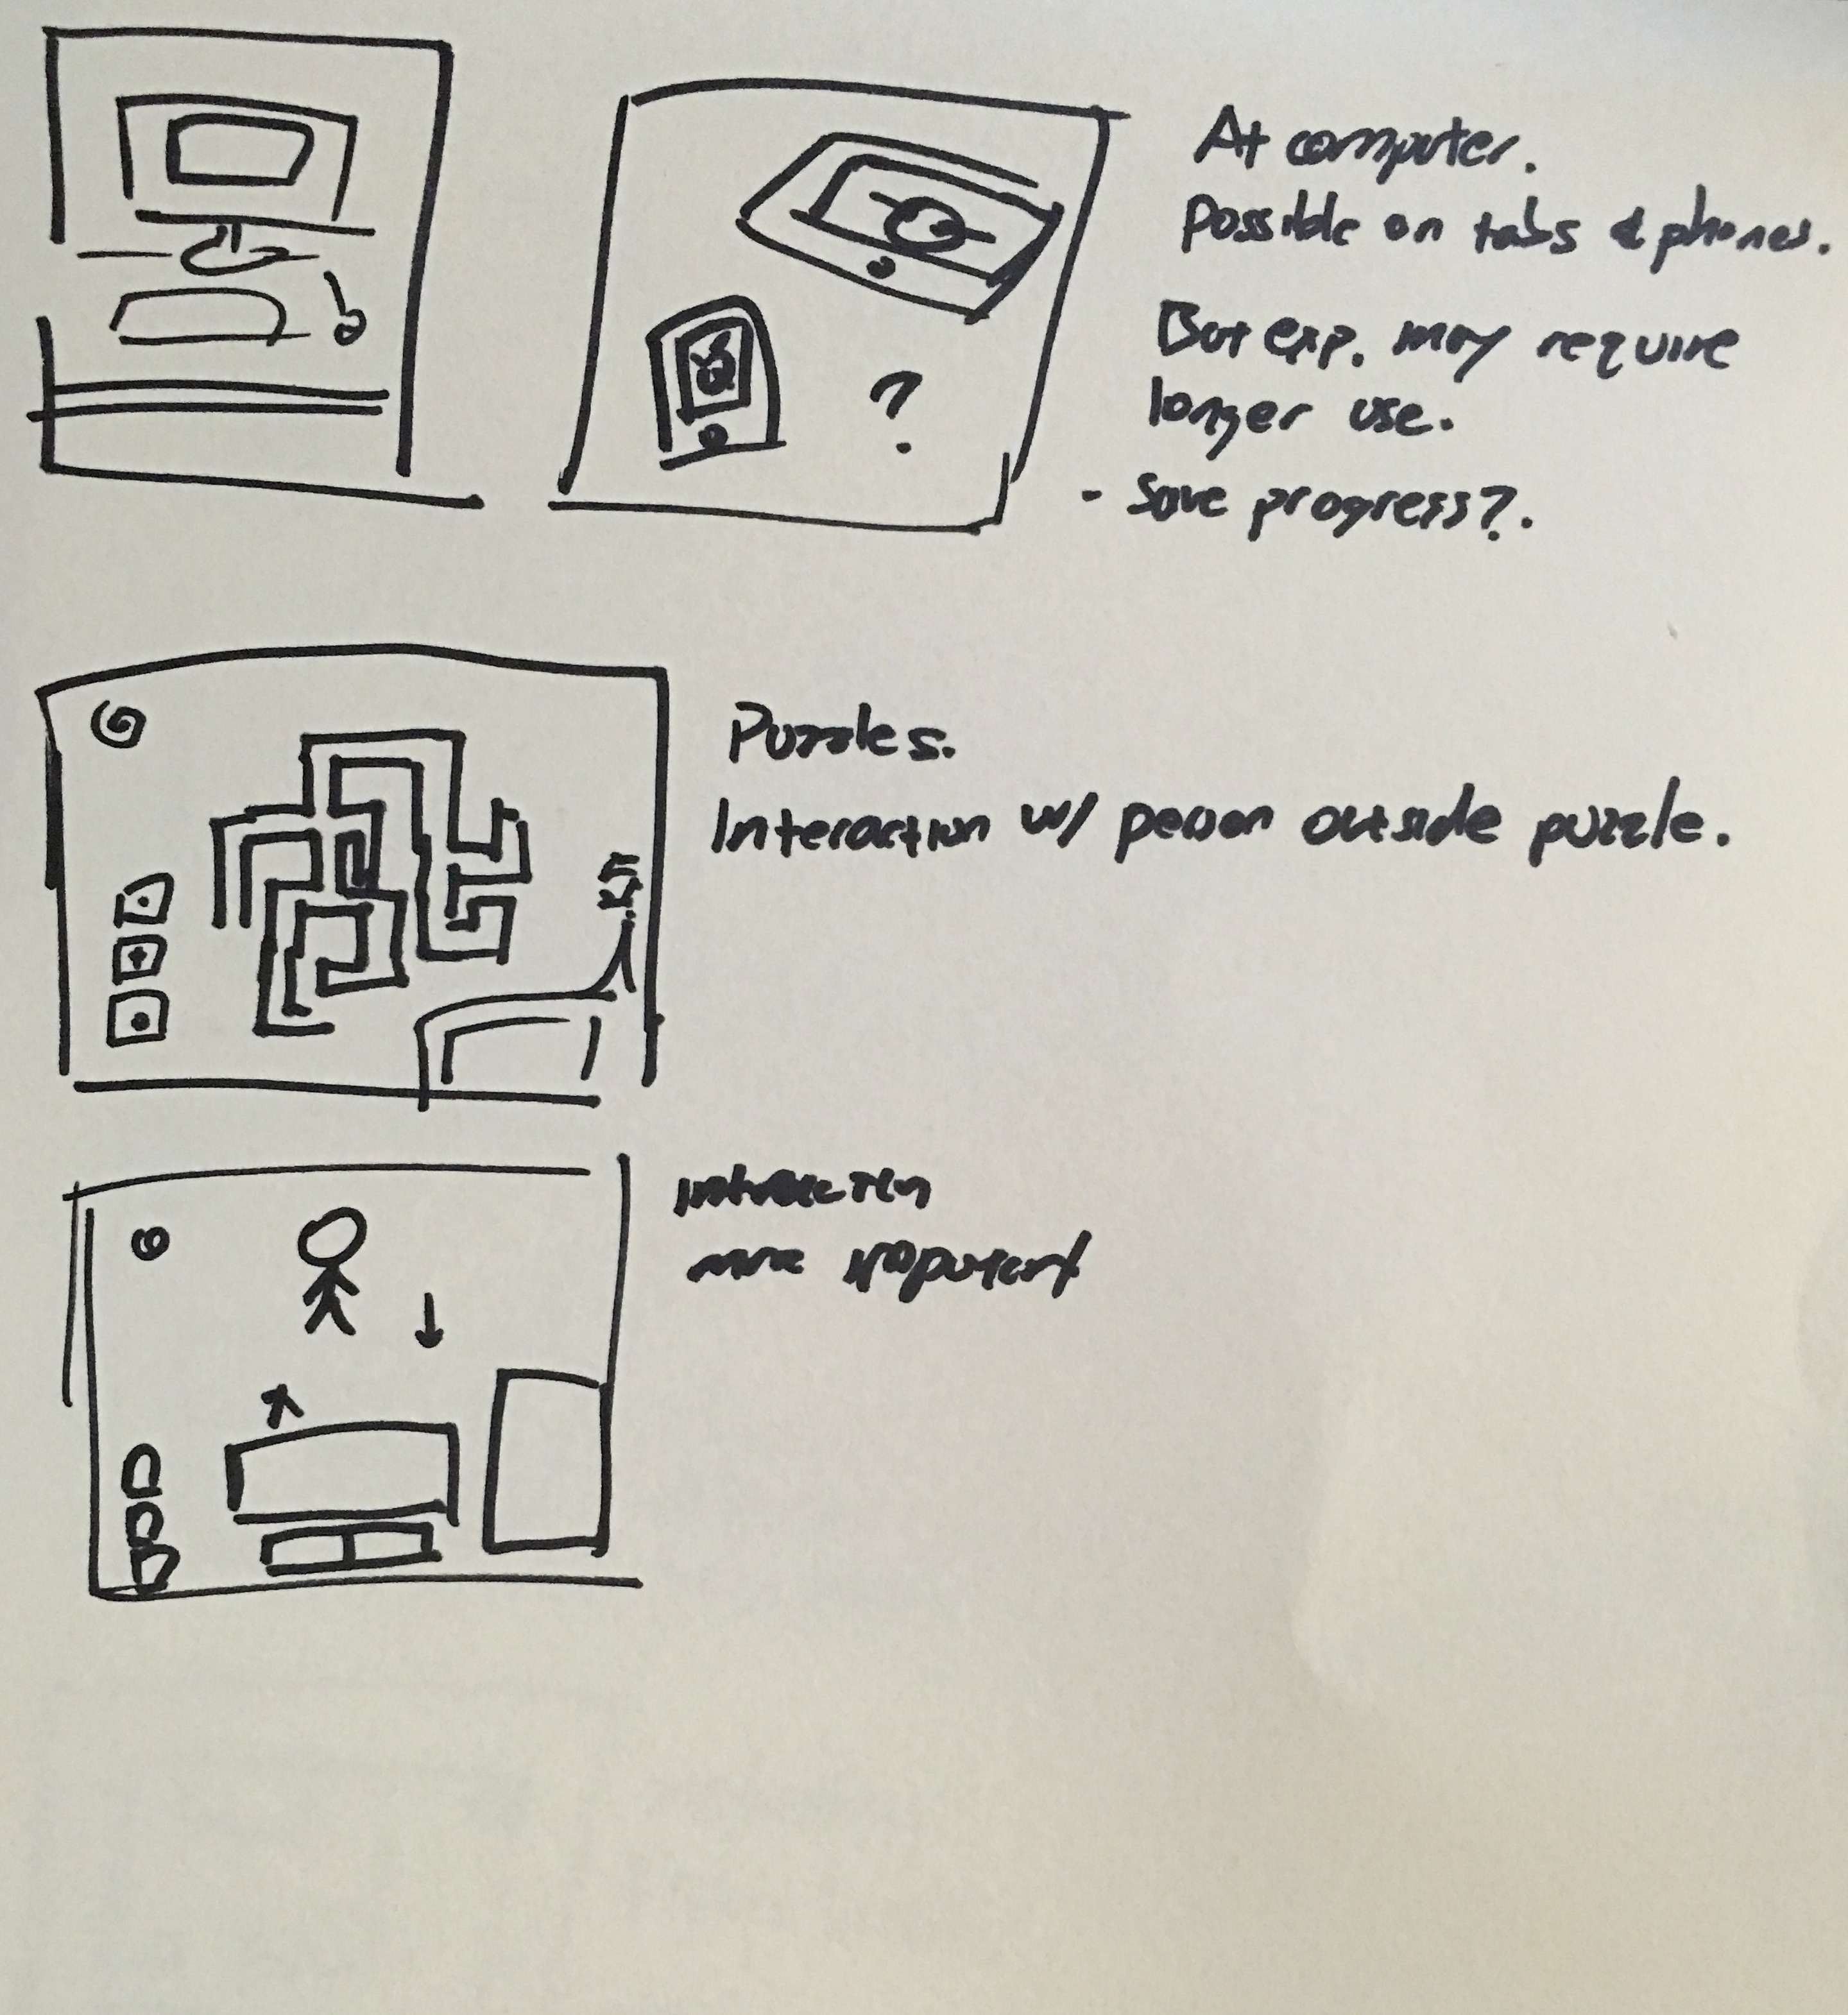 At computer.
Possible on tabs & phones.
But exp. may require
longer use.
- Save progress?.
?
Puzzles.
Interaction w/ person outside puzzle.
Interaction
more important